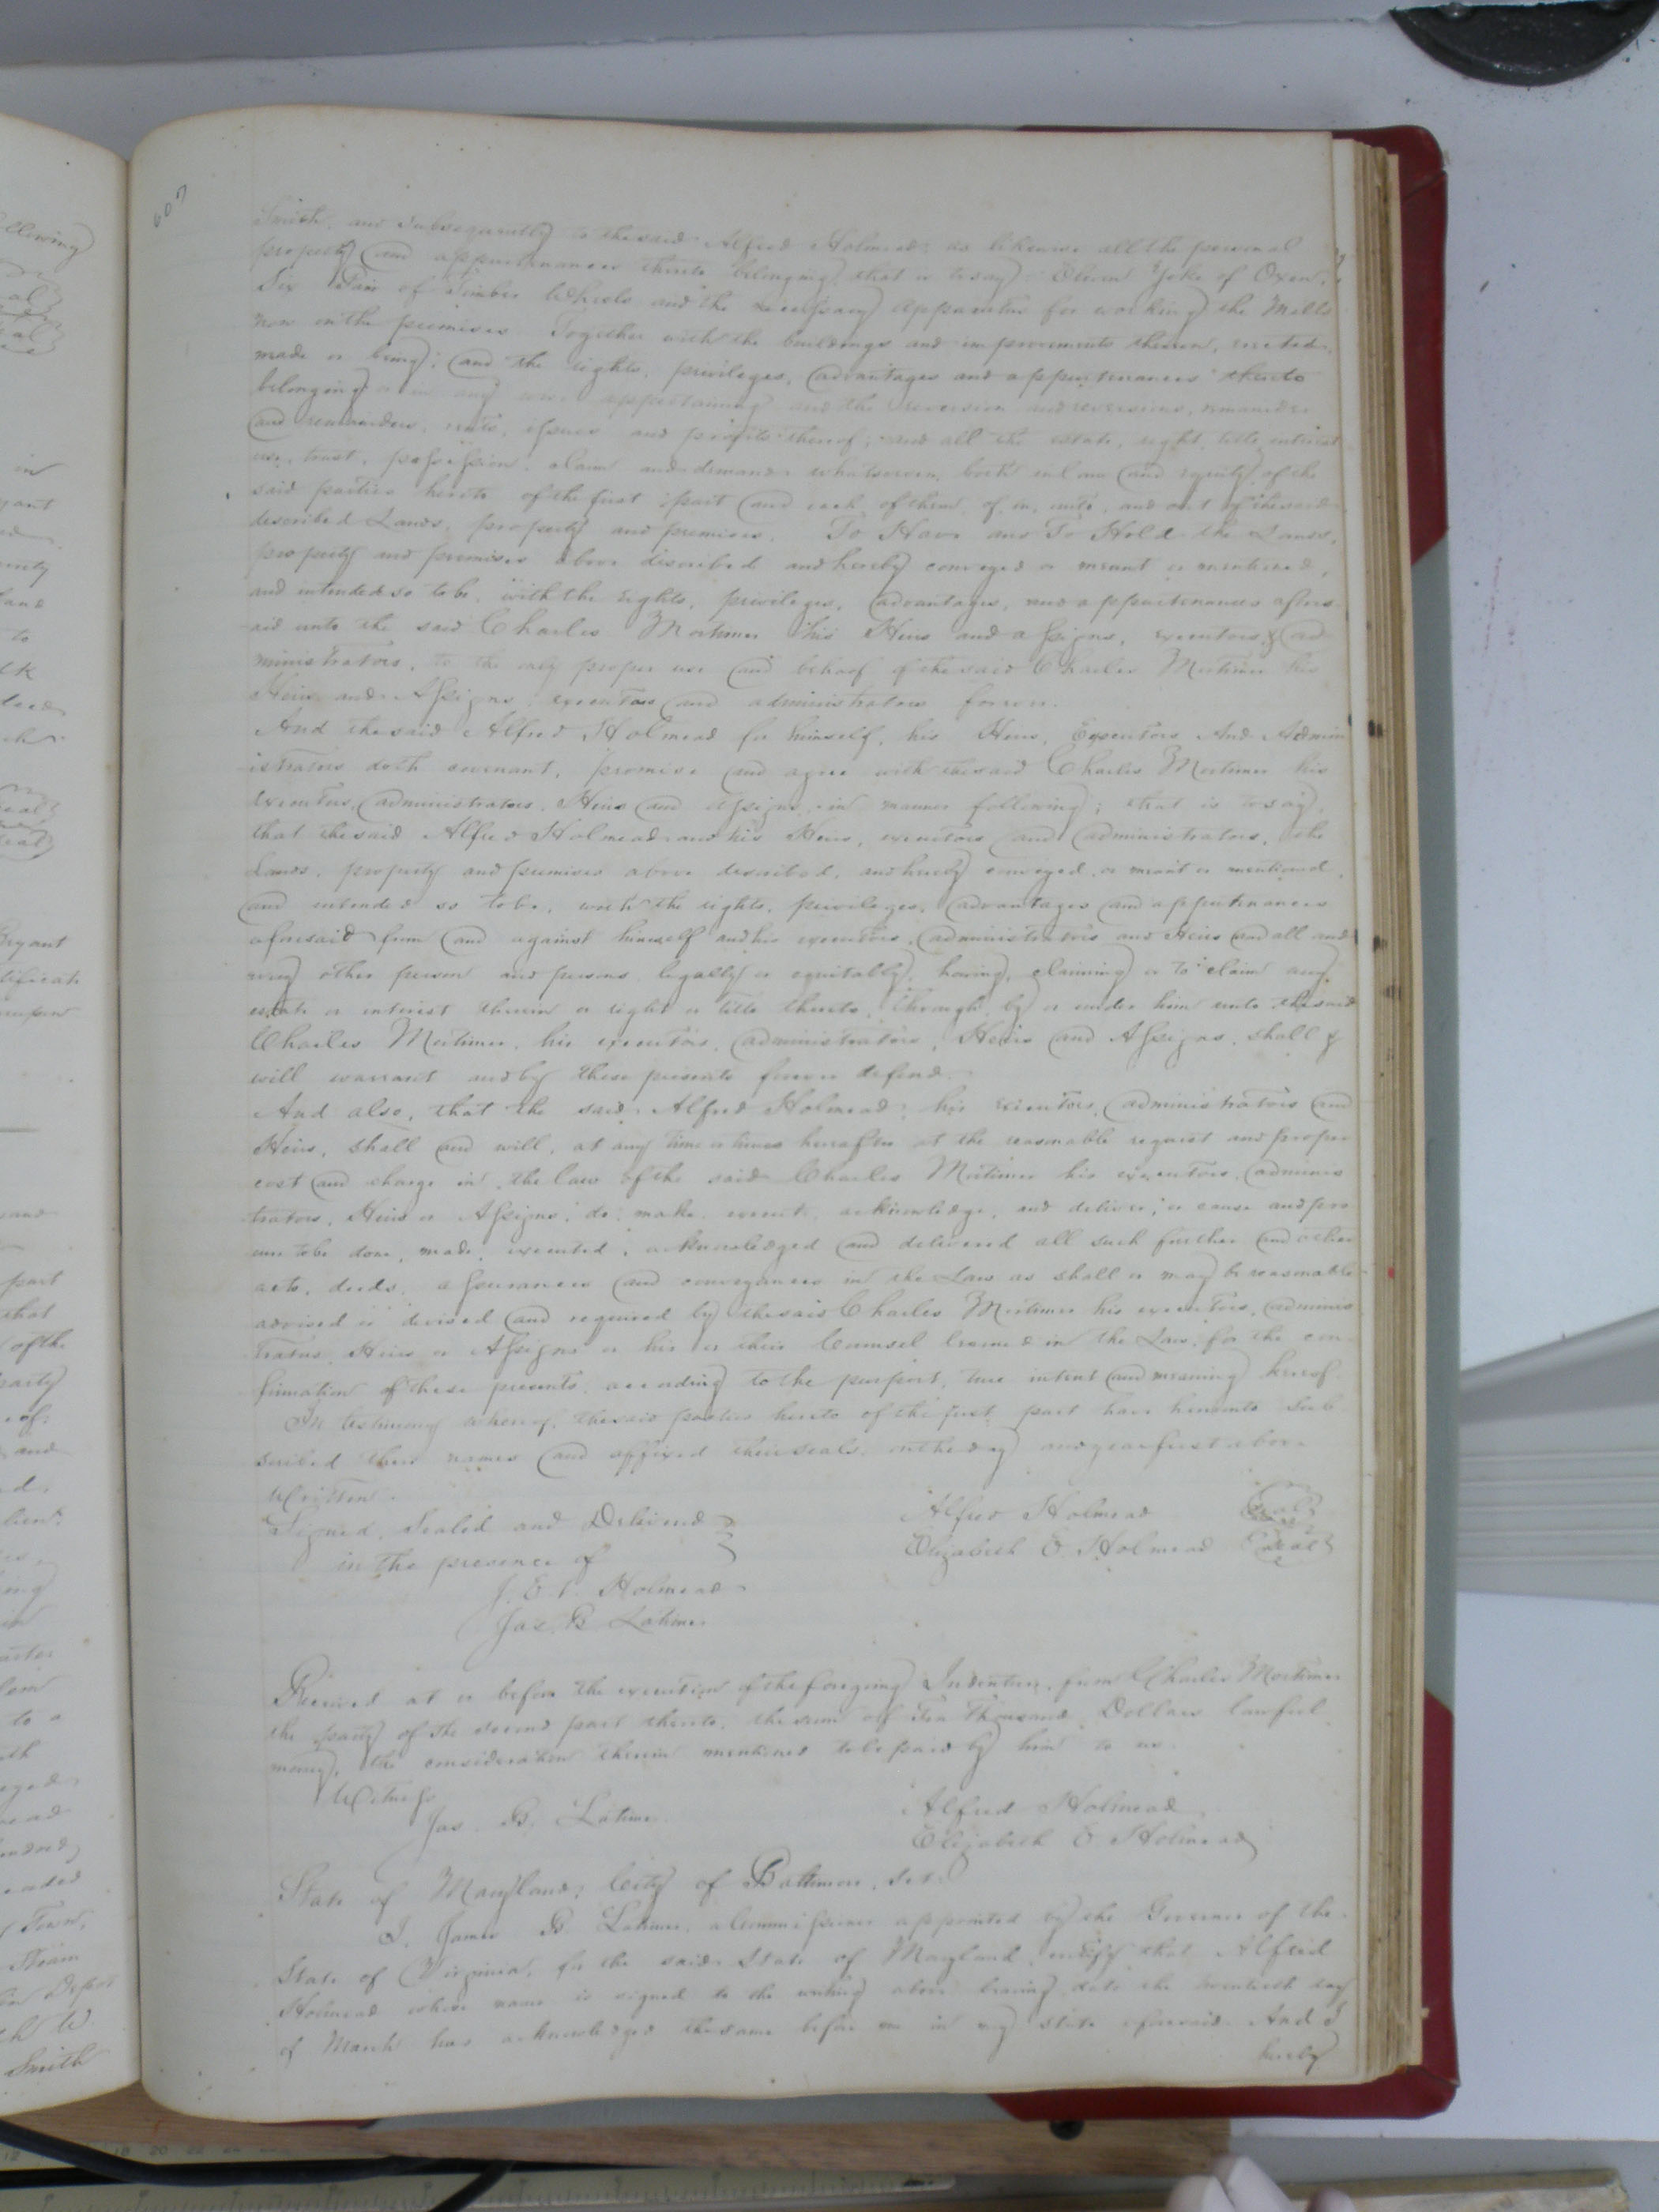 607
Smith, and subsequently to the said Alfred Holmead; as likewise all the personal
property and appurtenances thereto belonging that is to say: Eleven Yoke of Oxen,
Six Pair of Timber Wheels and the necessary apparatus for working the Mills
now on the premises. Together with the buildings and improvements thereon, erected,
made or being; and the rights, privileges, advantages and appurtenances thereto
belonging or in any wise appertaining and the reversion and reversions, remainder
and remainders, rents, issues and profits thereof; and all the estate, right, title, interest
use, trust, possession, claim and demand whatsoever, both in law and equity of the
said parties hereto of the first part and each of them, of, in, unto, and out of the said
described Lands, property and premises. To Have and To Hold the Lands,
property and premises above described and hereby conveyed or meant or mentioned,
and intended so to be, with the rights, privileges, advantages, and appurtenances afore
said unto the said Charles Mortimer his Heirs and assigns, executors & ad
ministrators, to the only proper use and behoof of the said Charles Mortimer his
Heirs and Assigns executors and administrators forever.
And the said Alfred Holmead for himself, his Heirs, Executors And Admin
istrators doth covenant, promise and agree with the said Charles Mortimer his
executors, administrators, Heirs and assigns in manner following; that is to say,
that the said Alfred Holmead and his Heirs, executors and administrators, the
Lands, property and premises above described, and hereby conveyed, or meant or mentioned,
and intended so to be, with the rights, privileges, advantages and appurtenances
aforesaid from and against himself and his executors, administrators and Heirs and all and
every other person and persons legally or equitably, having, claiming or to claim any
estate or interest therein or right or title thereto, through, by or under him unto the said
Charles Mortimer, his executors, administrators, Heirs and Assigns, shall &
will warrant and by these presents forever defend.
And also, that the said Alfred Holmead, his executors, administrators and
Heirs, shall and will, at any time or times hereafter at the reasonable request and proper
cost and charge in the law of the said Charles Mortimer his executors, adminis
trators, Heirs or Assigns, do, make, execute, acknowledge, and deliver; or cause and pro
cure to be done, made, executed, acknowledged and delivered all such further and other
acts, deeds, assurances and conveyances in the Law as shall or may be reasonable
advised or devised and required by the said Charles Mortimer his executors, adminis
trators, Heirs or Assigns or his or their Counsel learned in the Law, for the con
firmation of these presents, according to the purport, true intent and meaning hereof.
In testimony whereof, the said parties hereto of the first part have hereunto sub
scribed their names and affixed their seals on the day and year first above
Written.
Signed, Sealed and Delivered
in the presence of
J. E. P. Holmead
Jas. B. Latimer
Alfred Holmead Seal
Elizabeth E Holmead Seal
Received at or before the execution of the foregoing Indenture, from Charles Mortimer
the party of the second part thereto, the sum of Ten Thousand Dollars lawful
money, the consideration therein mentioned to be paid by him to us.
Witness
Jas. B. Latimer
Alfred Holmead
Elizabeth E Holmead
State of Maryland, City of Baltimore, Sct.
I, James B. Latimer, a Commissioner appointed by the Governor of the
State of Virginia, for the said State of Maryland, certify that Alfred
Holmead whose name is signed to the writing above bearing date the twentieth day
of March has acknowledged the same before me in my State aforesaid. And I
hereby